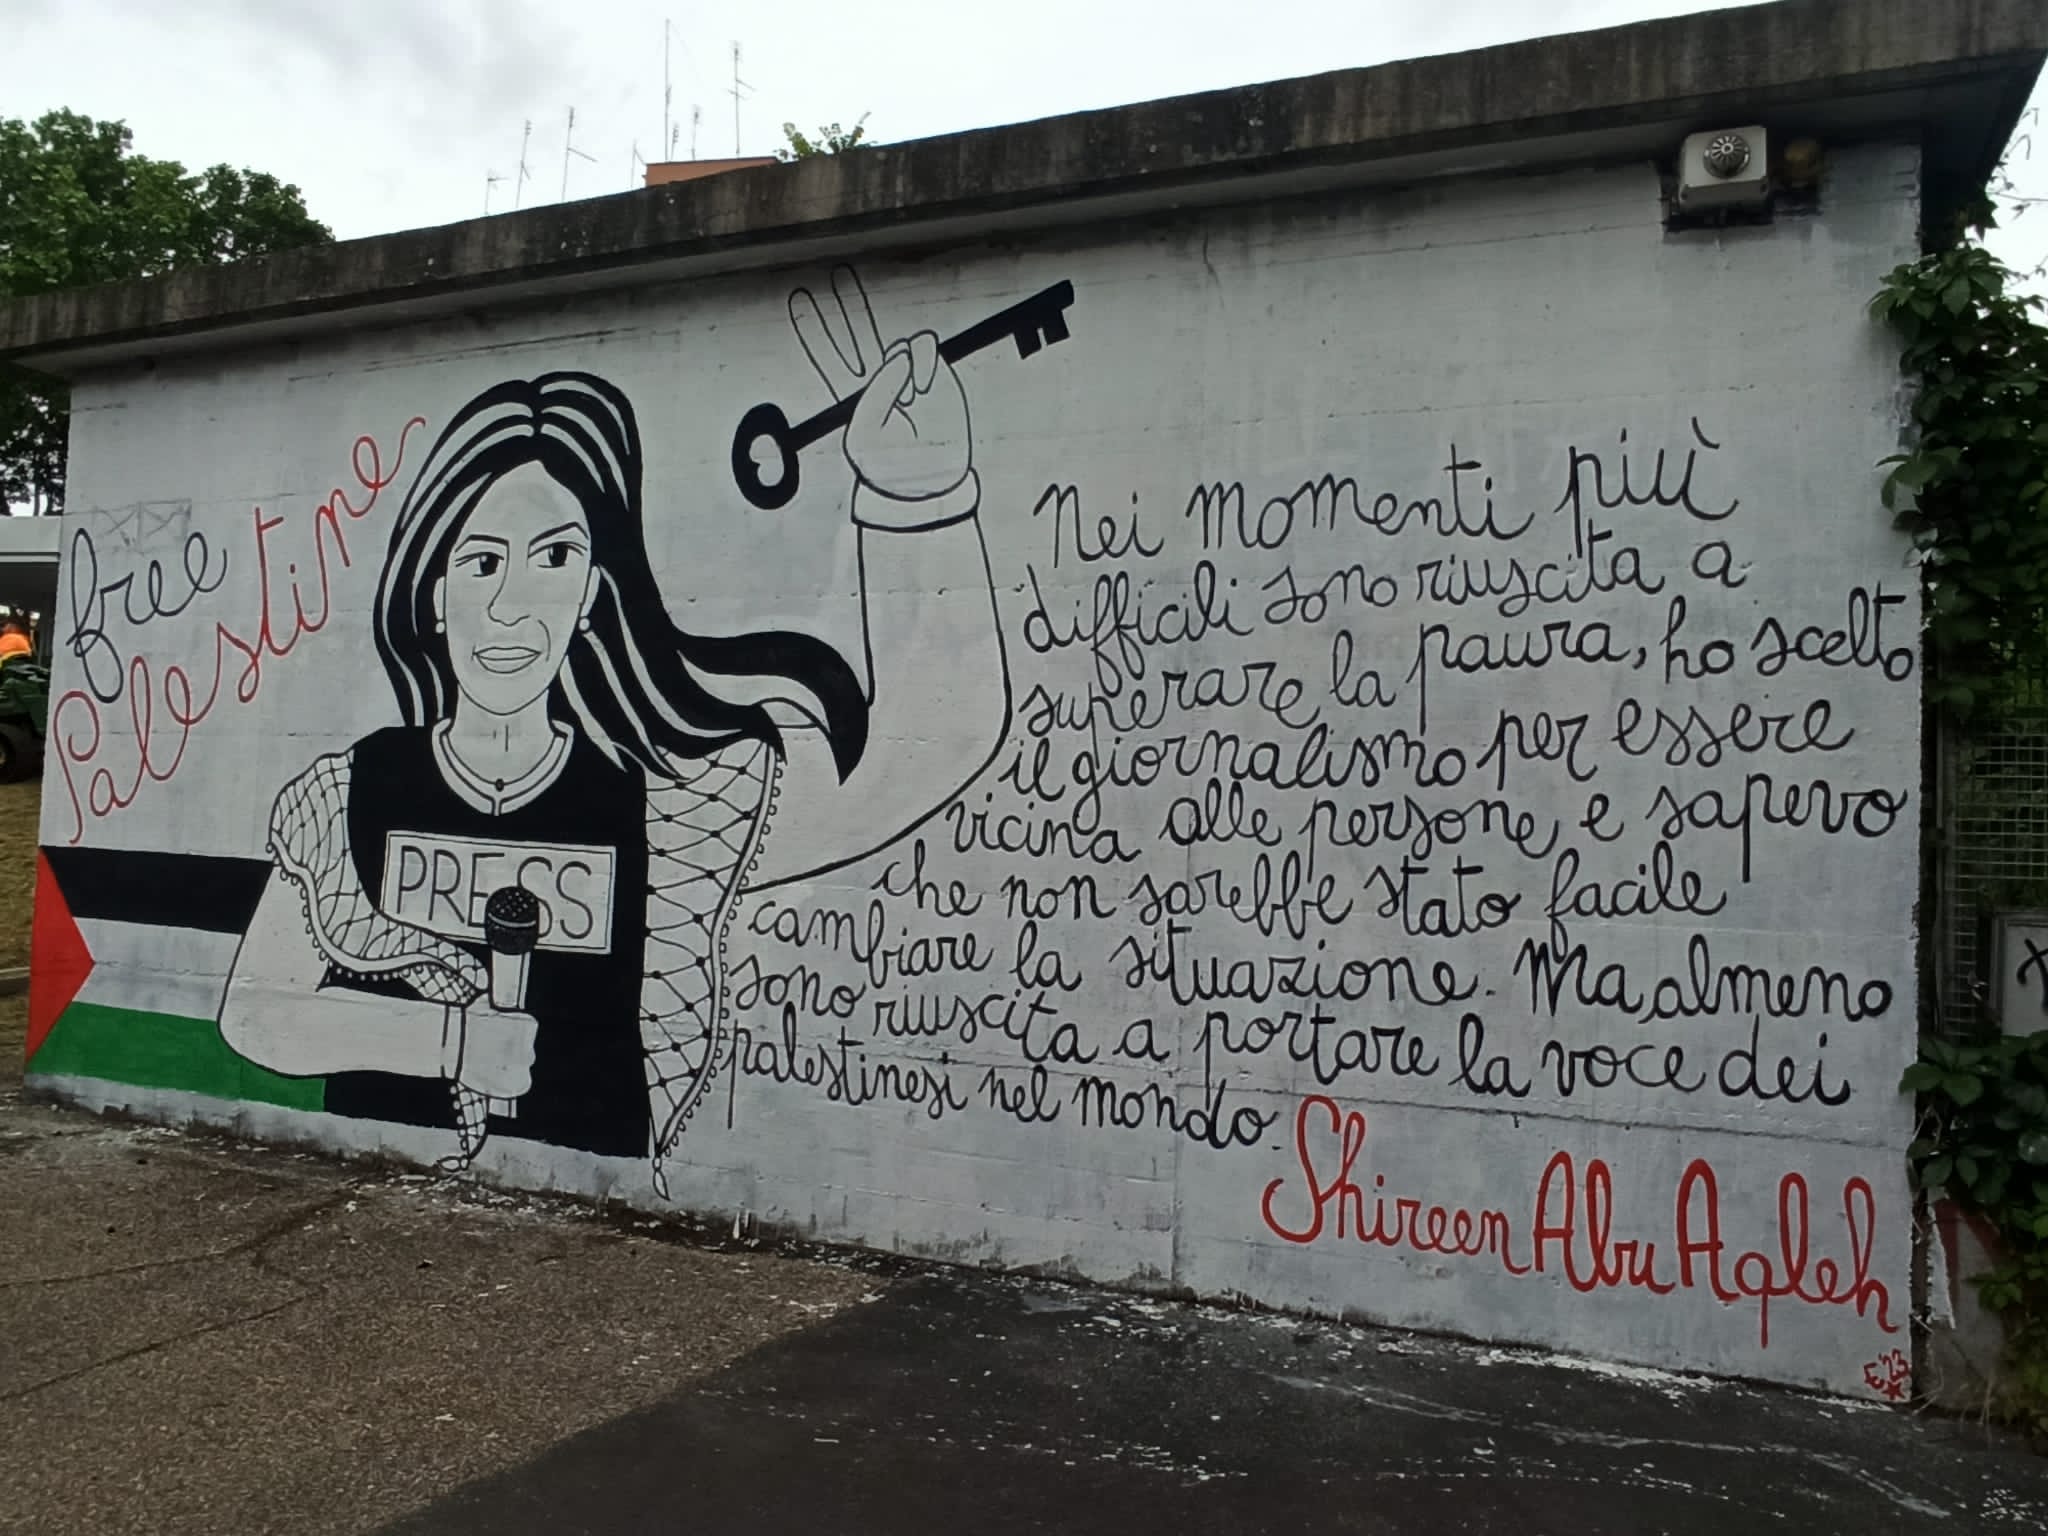 free
Palestine
PRESS
Nei momenti più
difficili sono riuscita a
superare la paura, ho scelto
il giornalismo per essere
vicina alle persone, e sapevo
che non sarebbe stato facile
cambiare la situazione. Ma, almeno
sono riuscita a portare la voce dei
palestinesi nel mondo.
Shireen Abu Aqleh
'23